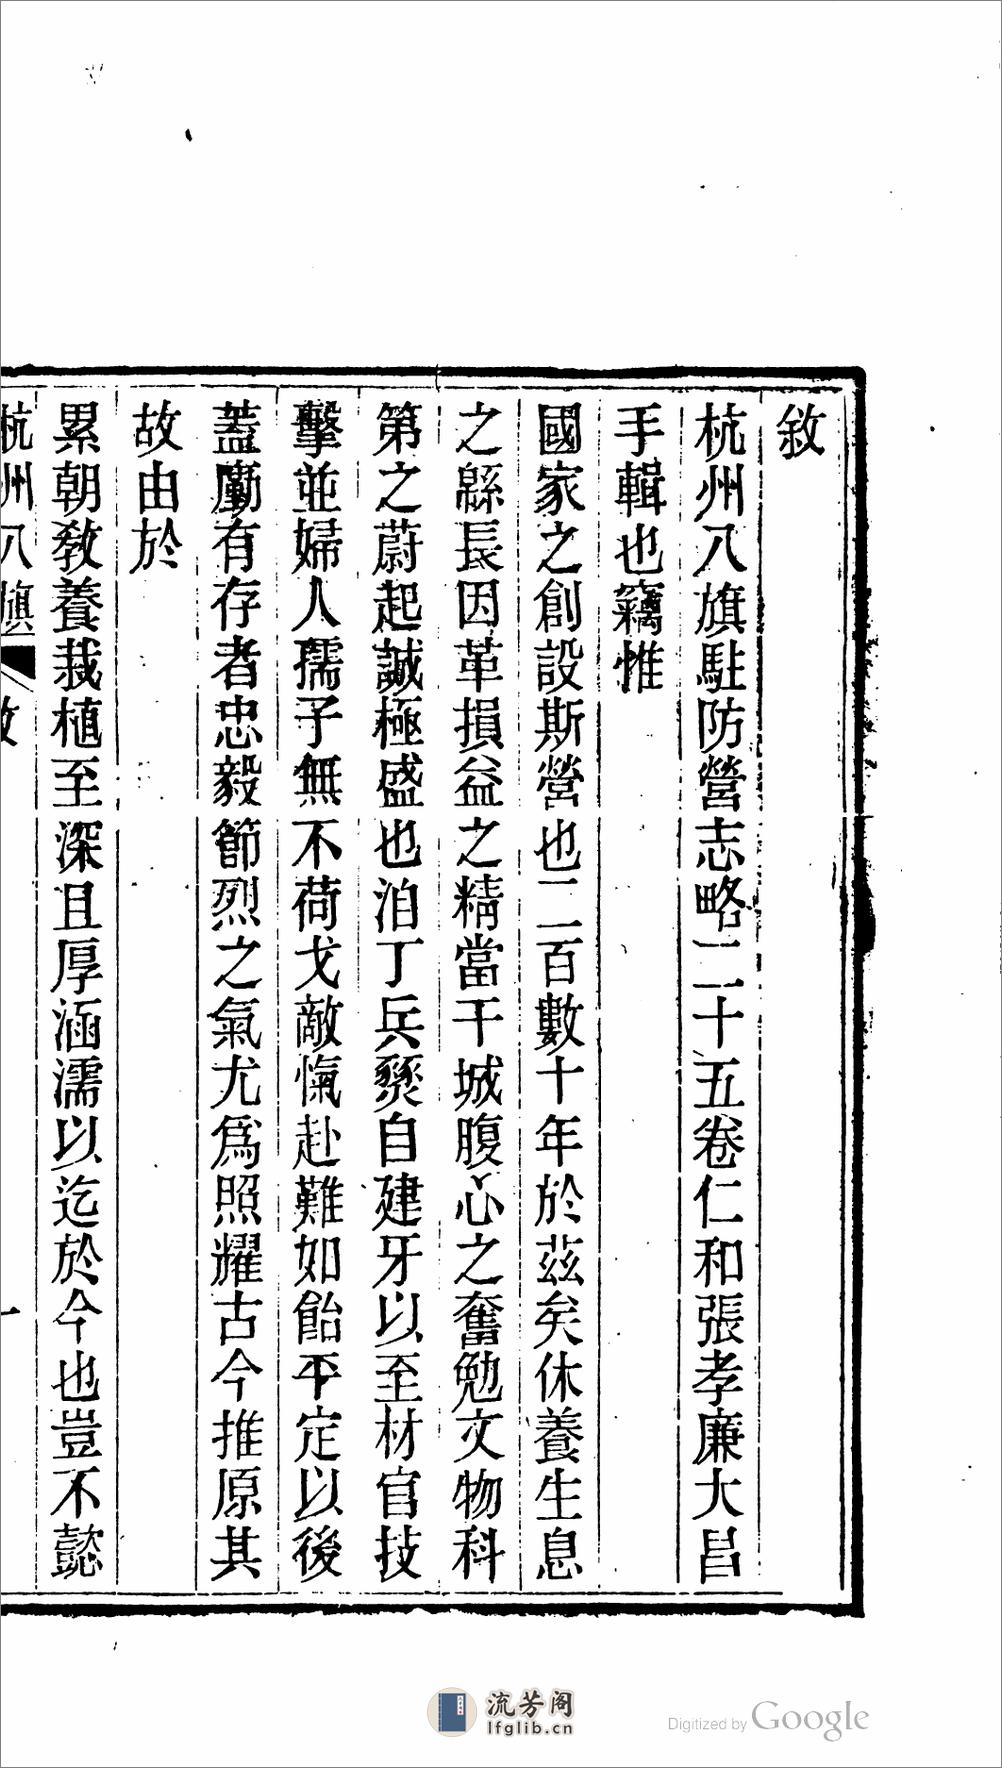 敘
杭州八旗駐防營志略二十五卷仁和張孝廉大昌
手輯也竊惟
國家之創設斯營也二百數十年於茲矣休養生息
之緜長因革損益之精當干城腹心之奮勉文物科
第之蔚起誠極盛也洎丁兵燹自建牙以至材官技
擊並婦人孺子無不荷戈敵愾赴難如飴平定以後
蓋廑有存者忠毅節烈之氣尤爲照耀古今推原其
故由於
累朝教養栽植至深且厚涵濡以迄於今也豈不懿
杭州八旗
敘
一
流芳阁
lfglib.cn
Digitized by Google